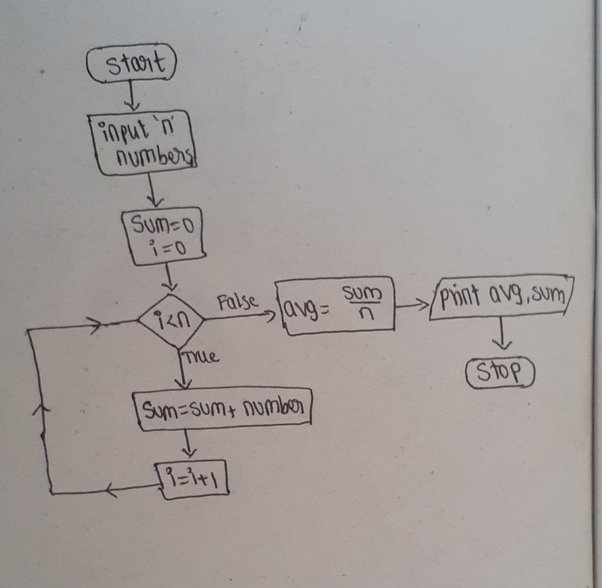 Start
input 'n'
numbers
Sum=0
i=0
i<n
False
True
avg= sum/n
print avg, sum
Stop
Sum=sum+ number
i=i+1